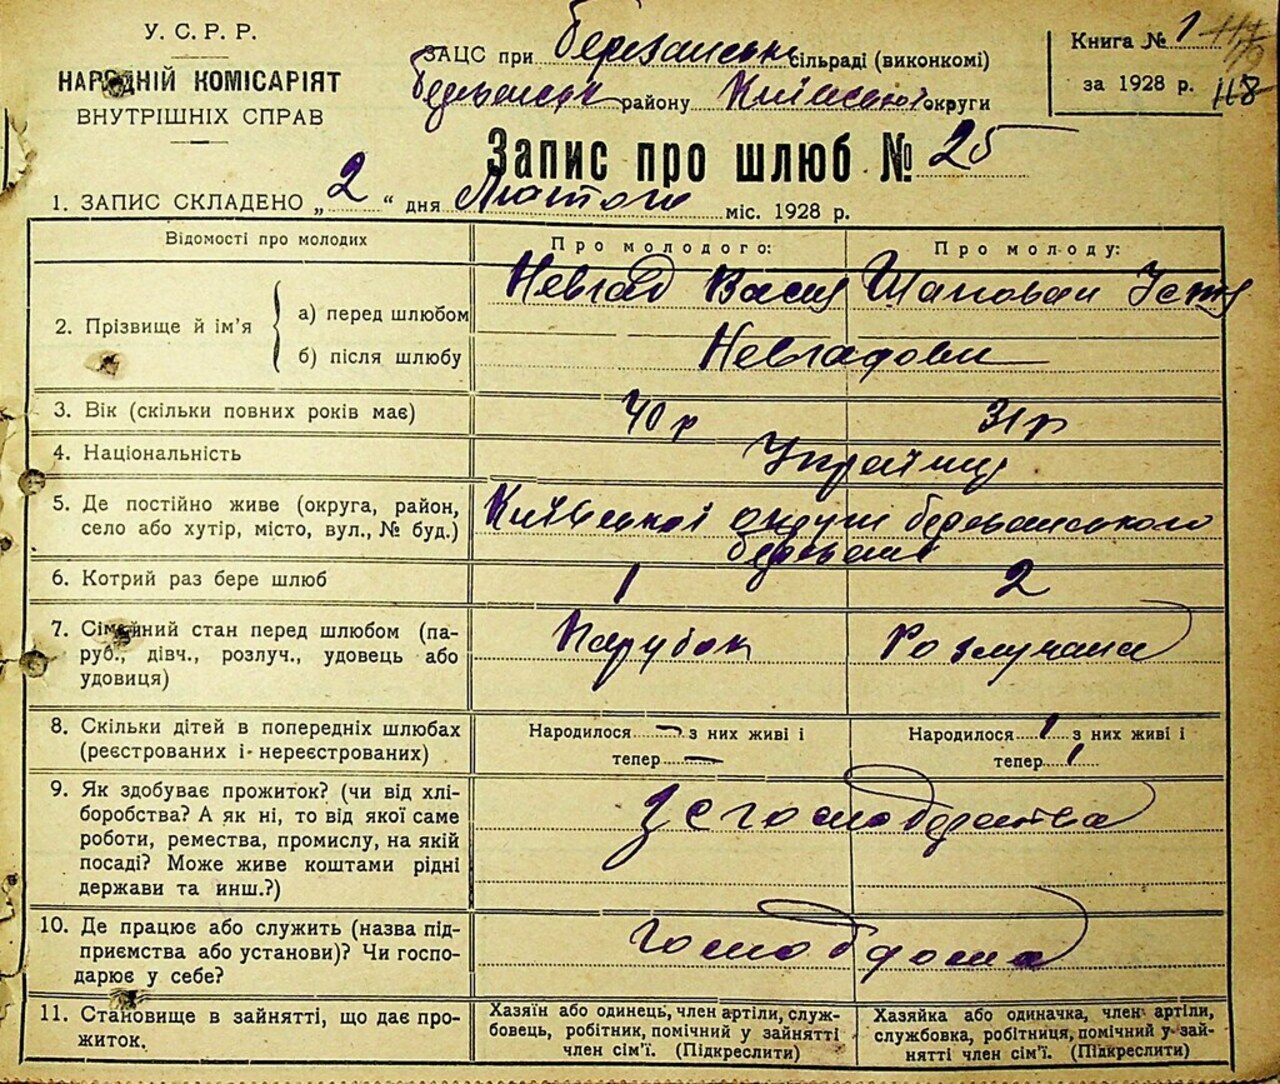 У. С. Р. Р.
НАРОДНІЙ КОМІСАРІЯТ
ВНУТРІШНІХ СПРАВ
ЗАЦС при Березанські сільраді (виконкомі)
району Київської округи
Книга № 1
за 1928 р. 118
Запис про шлюб № 25
1. ЗАПИС СКЛАДЕНО „ 2 “ дня Лютого міс. 1928 р.
Відомості про молодих
Про молодого:
Про молоду:
2. Прізвище й ім'я
а) перед шлюбом
Невгад Васил
Шаповал Устя
б) після шлюбу
Невгадови
3. Вік (скільки повних років має)
40 р
31 р
4. Національність
Українці
5. Де постійно живе (округа, район,
село або хутір, місто, вул., № буд.)
Київської округи березанського
6. Котрий раз бере шлюб
1
2
7. Сімейний стан перед шлюбом (па-
руб., дівч., розлуч., удовець або
удовиця)
Парубок
Розлучена
8. Скільки дітей в попередніх шлюбах
(реєстрованих і нереєстрованих)
Народилося — з них живі і
тепер —
Народилося 1 з них живі і
тепер 1
9. Як здобуває прожиток? (чи від хлі-
боробства? А як ні, то від якої саме
роботи, ремества, промислу, на якій
посаді? Може живе коштами рідні
держави та инш.?)
10. Де працює або служить (назва під-
приємства або установи)? Чи госпо-
дарює у себе?
11. Становище в зайнятті, що дає про-
житок.
Хазяїн або одинець, член артіли, служ-
бовець, робітник, помічний у зайнятті
член сім'ї. (Підкреслити)
Хазяйка або одиначка, член артіли,
службовка, робітниця, помічний у зай-
нятті член сім'ї. (Підкреслити)